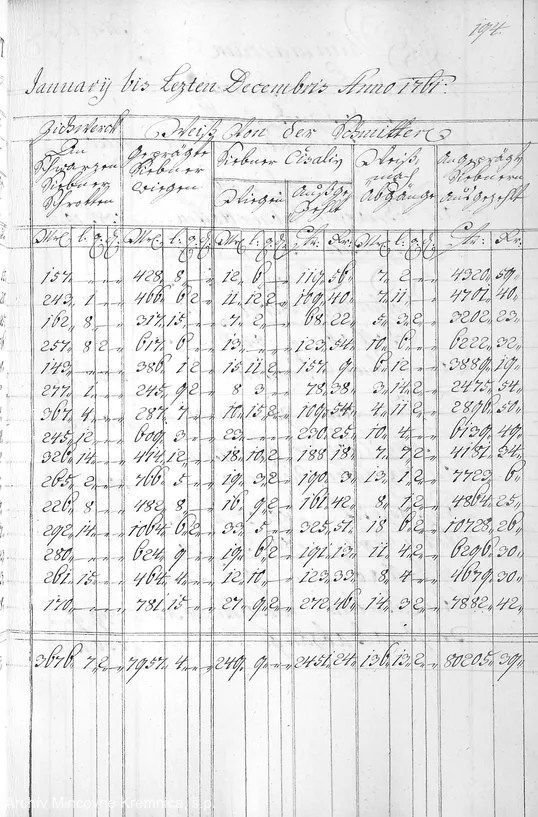 194.
January bis Lezten Decembris Anno 1761.
Zickwerck Weiß Von der Schmitten
Im Schwarzen Siebner Schrotten
Geprägte Siebner Wiegen
Siebner Cisalien
Wiegen
Weiß nach Abgänge
Ausgezehlt
157 428 8 12 6 119 56 7 2 4320 59
243 1 466 6 2 11 12 2 109 40 7 11 4701 40
162 8 317 15 7 2 68 22 5 3 2 3202 23
257 8 2 617 6 13 123 54 10 6 6222 32
143 386 1 2 15 11 2 157 9 6 12 3889 19
277 1 245 9 2 8 3 78 38 3 14 2 2475 54
367 4 287 7 10 15 2 109 54 4 11 2 2896 50
245 12 609 3 23 230 25 10 4 6139 49
326 14 414 12 18 10 2 188 18 7 7 2 4181 34
265 2 766 5 19 3 2 190 3 13 1 2 7723 6
226 8 482 8 16 9 2 161 42 8 1 2 4864 25
292 14 1064 6 2 33 5 325 51 18 6 2 10728 26
280 624 9 19 6 2 191 13 11 4 2 6296 30
261 15 464 4 12 11 123 33 8 4 4679 30
170 781 15 27 9 2 272 46 14 3 2 7882 42
3676 7 2 7957 4 249 9 2451 24 136 13 2 80205 39
Archív Mincovne Kremnica, š.p.